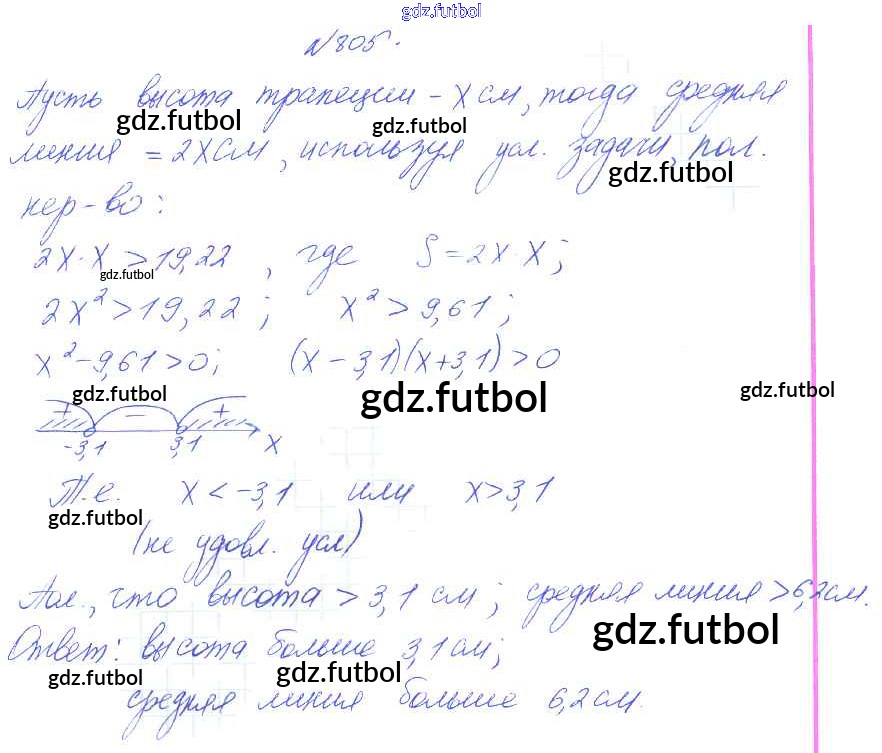 gdz.futbol
№805.
Пусть высота трапеции - x см, тогда средняя
gdz.futbol gdz.futbol
линия = 2x см, используя усл. задачи, пол.
gdz.futbol
нер-во:
2x · x > 19,22, где S = 2x · x;
gdz.futbol
2x² > 19,22; x² > 9,61;
x² - 9,61 > 0; (x - 3,1)(x + 3,1) > 0
gdz.futbol gdz.futbol gdz.futbol
+ - +
-3,1 3,1 x
Т.е. x < -3,1 или x > 3,1
gdz.futbol
(не удовл. усл)
Пол., что высота > 3,1 см; средняя линия > 6,2 см.
gdz.futbol
Ответ: высота больше 3,1 см;
gdz.futbol gdz.futbol
средняя линия больше 6,2 см.